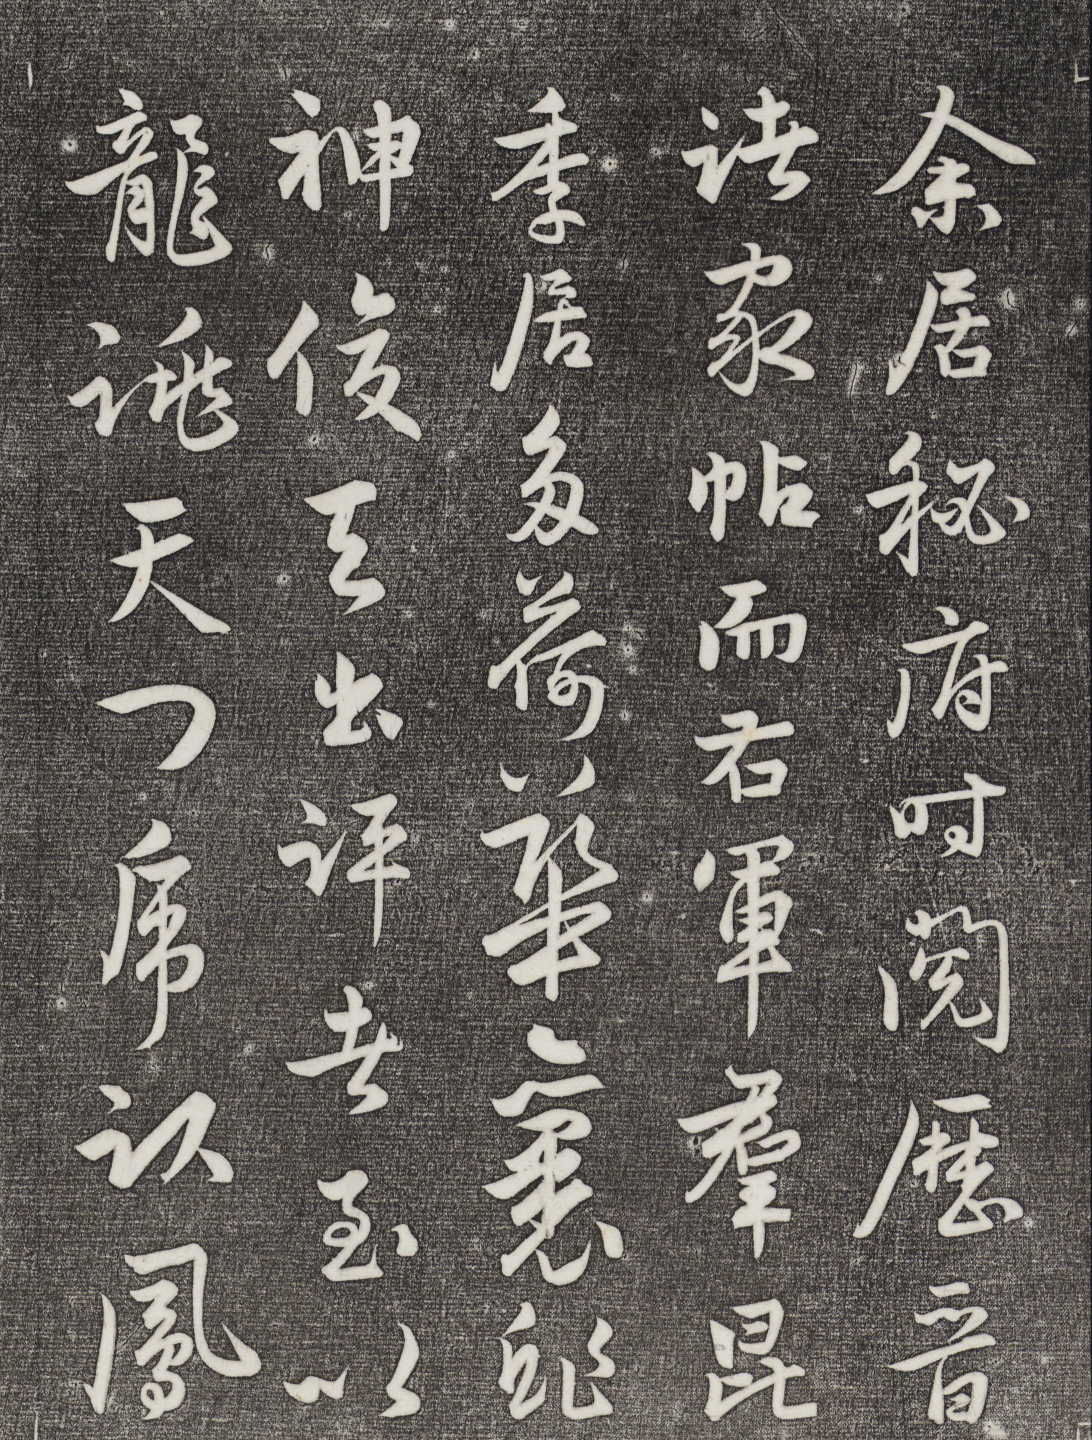 余居秘府時閱歷晉
諸家帖而右軍羣昆
季居多荷華
神俊天出評者至以
龍跳天門虎臥鳳